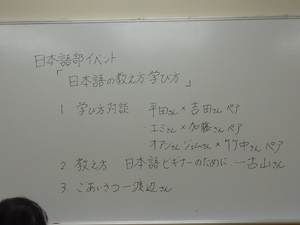 日本語部イベント
「日本語の教え方学び方」
1 学び方対談 平田さん×吉田さんペア
エミさん×加藤さんペア
オアンさん ×竹中さんペア
2 教え方 日本語ビギナーのために ー古山さん
3. ごあいさつー渡辺さん